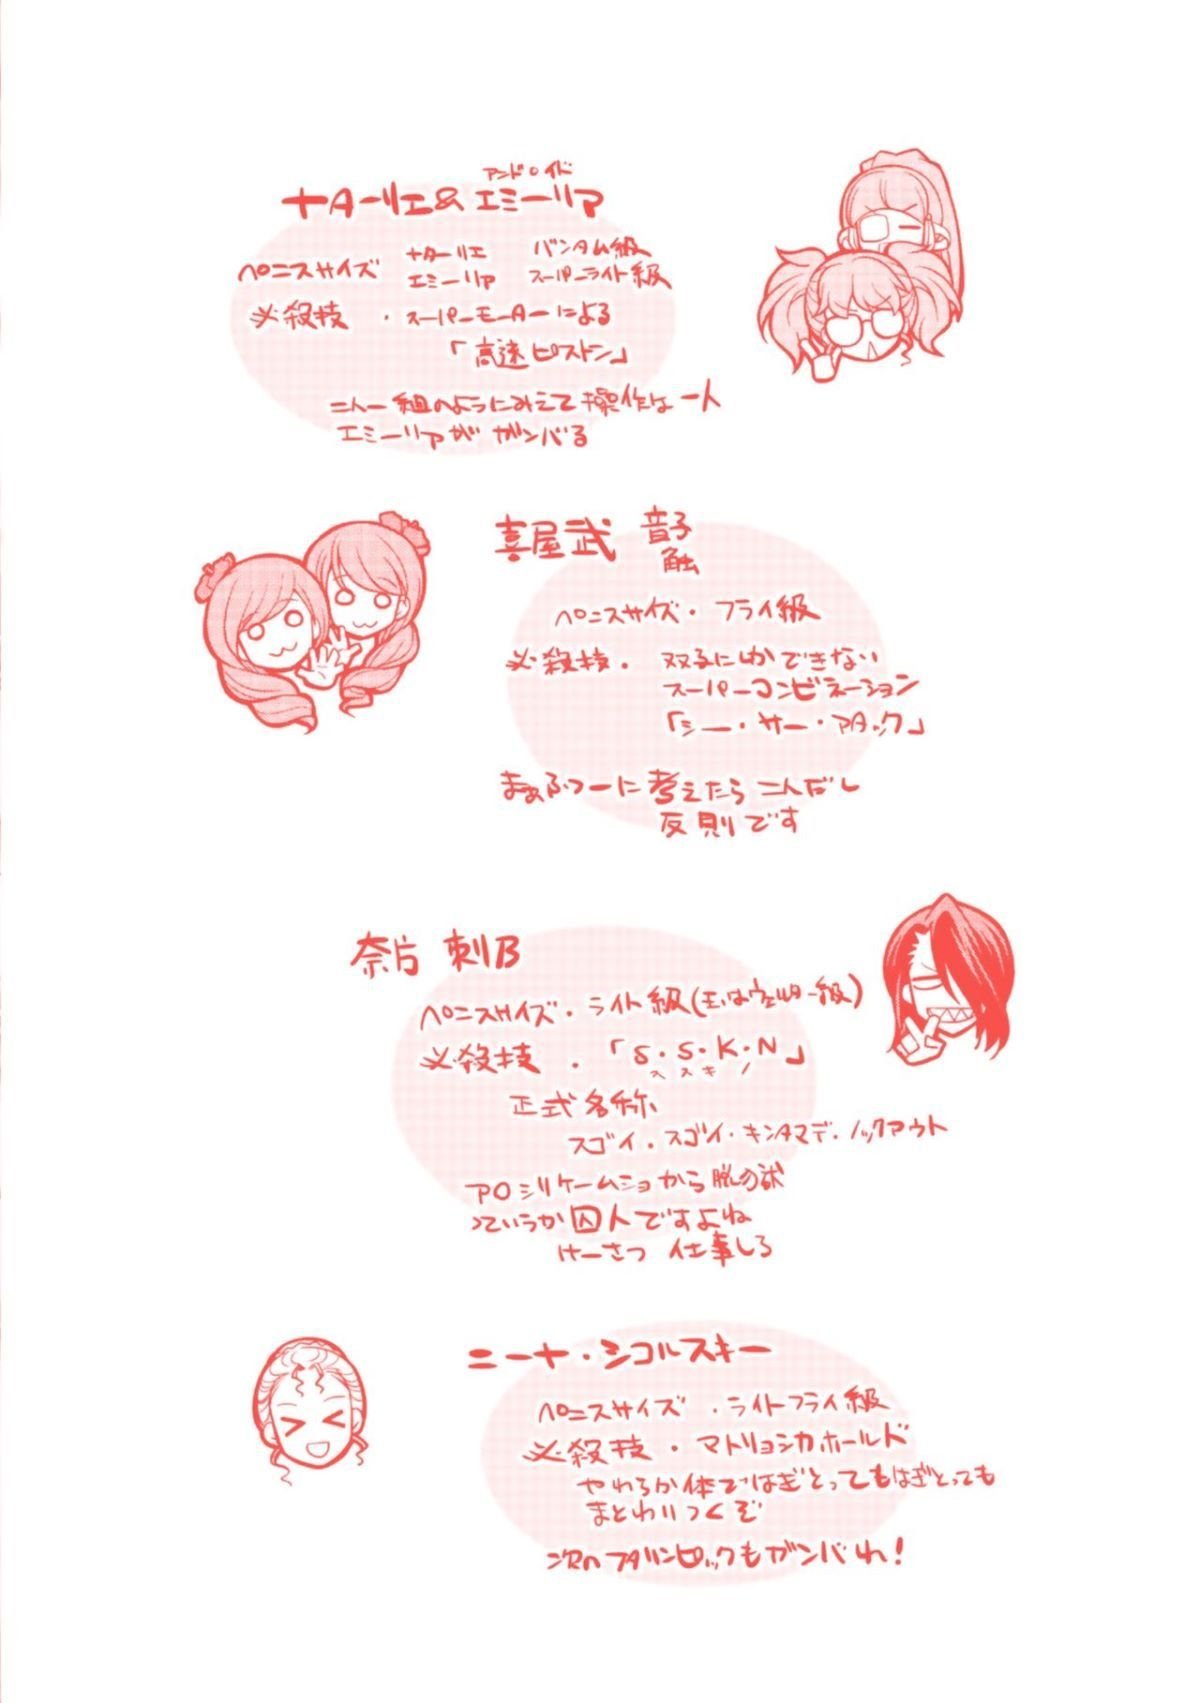 アンドロイド
ナターリエ&エミーリア
ペニスサイズ ナターリエ バンタム級
エミーリア スーパーライト級
必殺技 ・スーパーモーターによる
「高速ピストン」
二人一組のようにみえて操作は一人
エミーリアがガンバる
喜屋武 音子
触
ペニスサイズ・フライ級
必殺技・双子にしかできない
スーパーコンビネーション
「シー・サー・アタック」
まぁふつーに考えたら二人だし
反則です
奈片 刺B
ペニスサイズ・ライト級(玉はウェルター級)
必殺技 ・「S・S・K・N」
ススキノ
正式名称
スゴイ・スゴイ・キンタマデ・ノックアウト
アOシリケームショから脱の獄
っていうか囚人ですよね
けーさつ 仕事しろ
ニーナ・シコルスキー
ペニスサイズ ・ライトフライ級
必殺技・マトリョシカホールド
やわらか体ではぎとってもはぎとっても
まとわりつくぞ
次のフタリンピックもガンバれ!